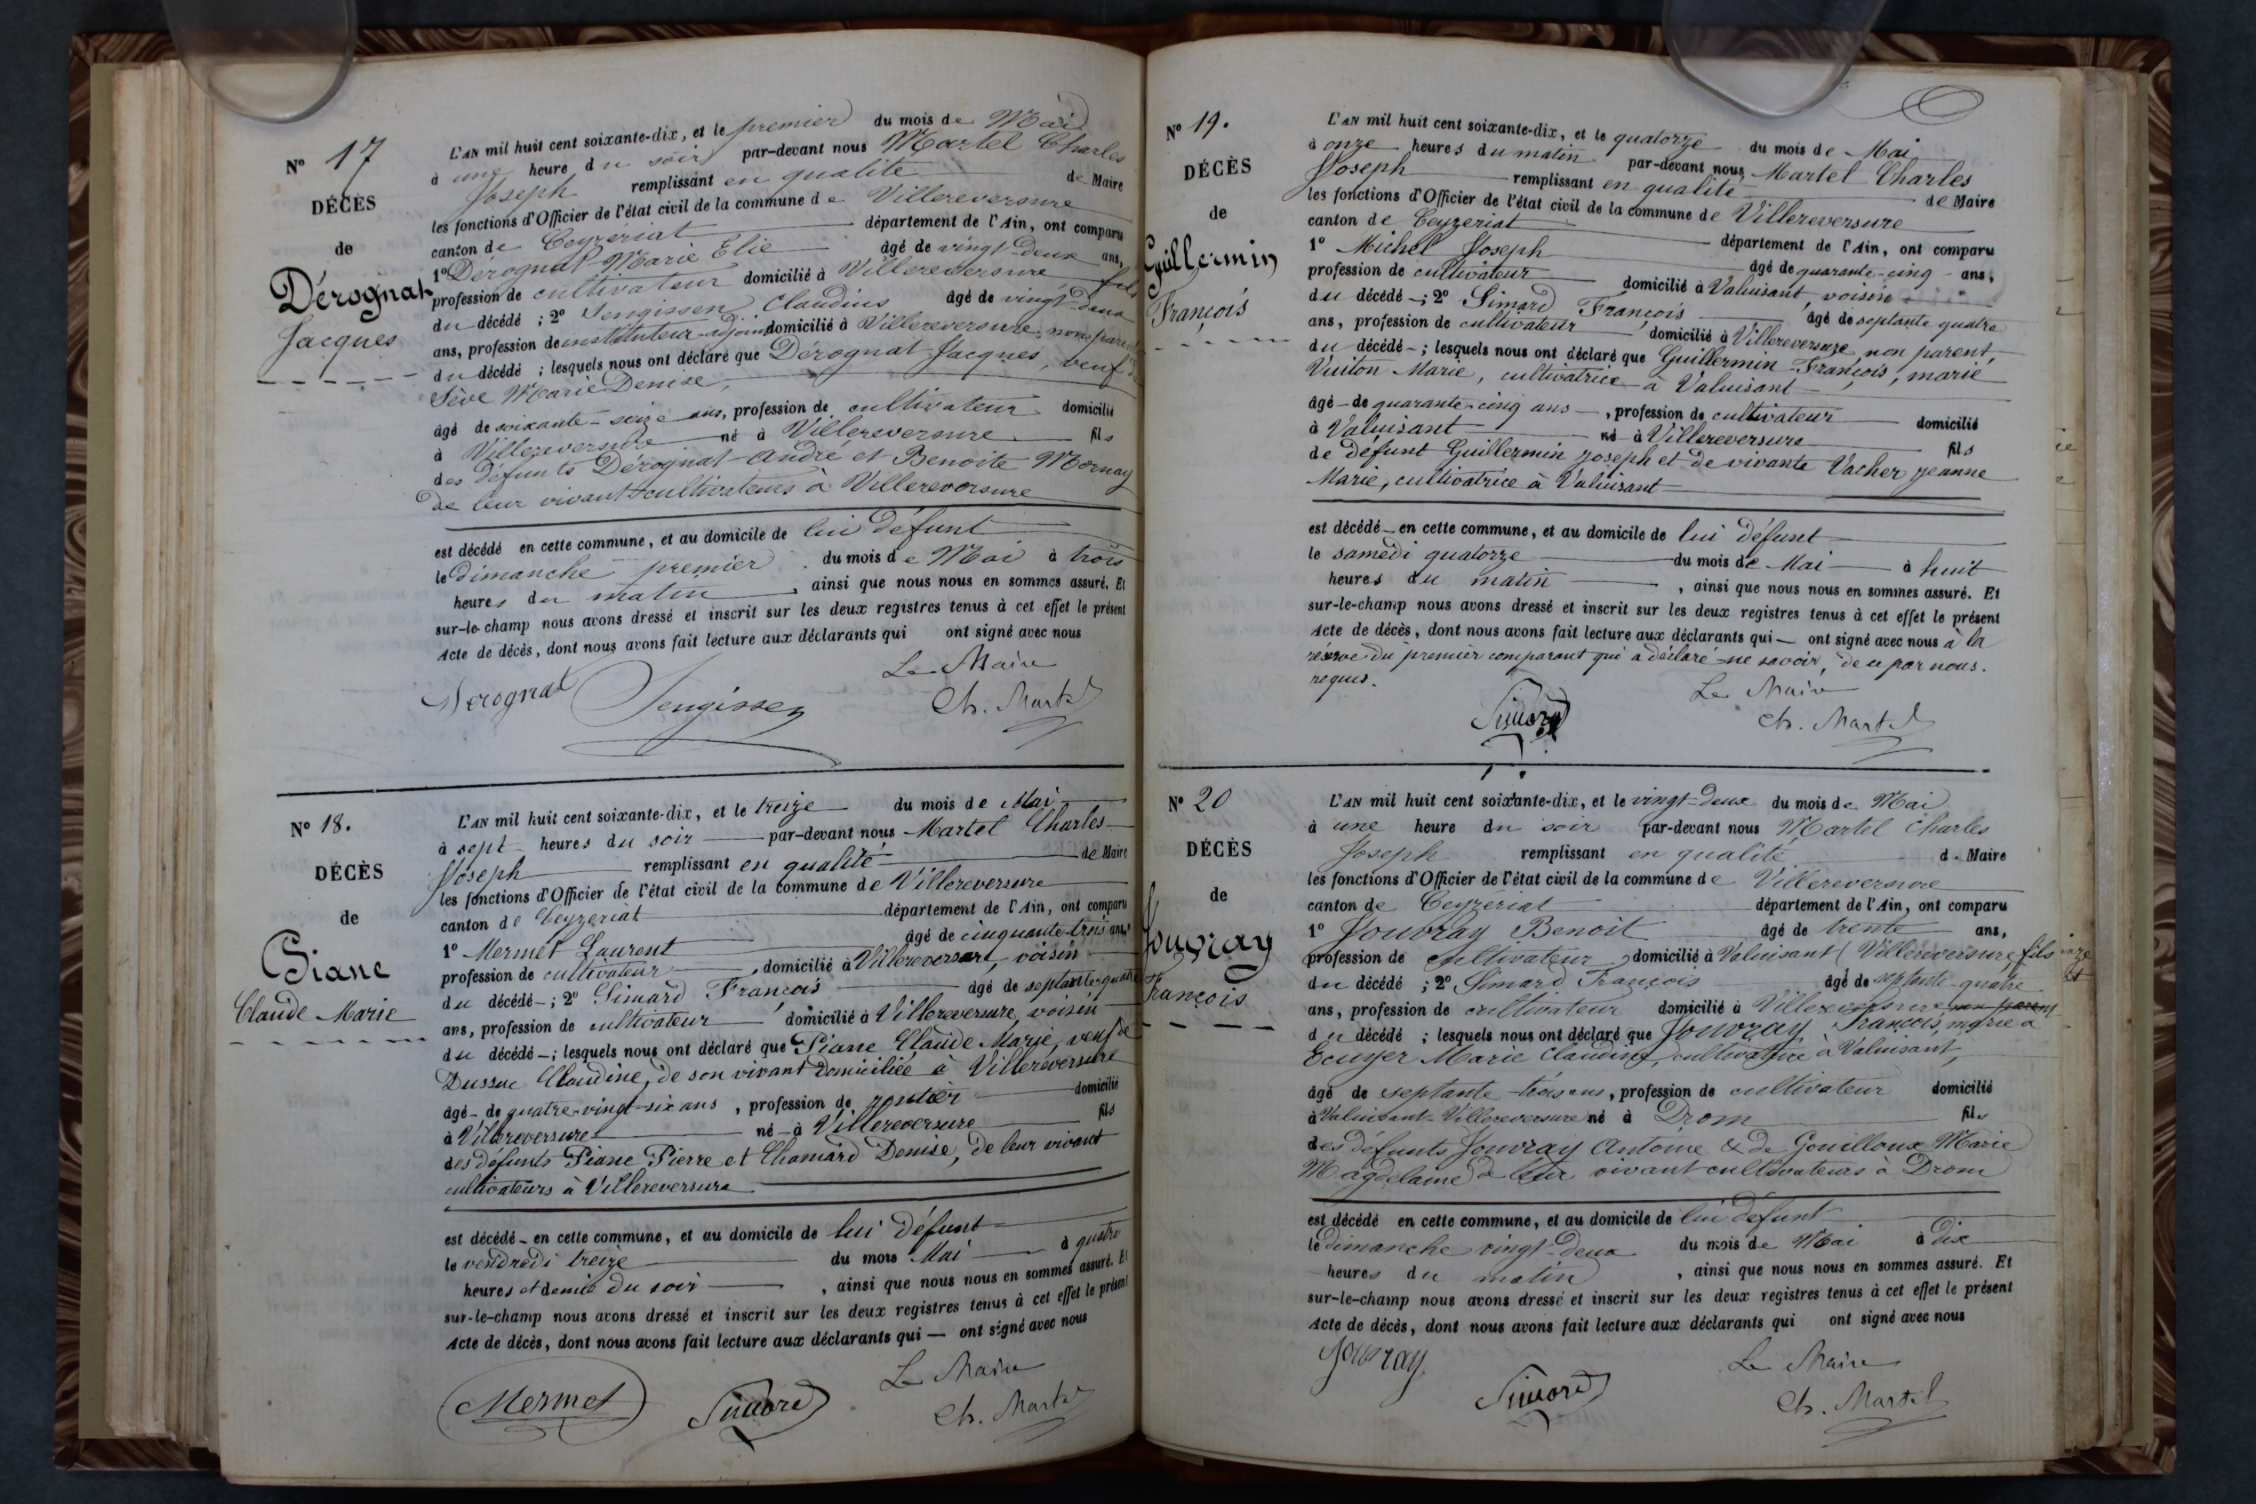 Nº 17
DÉCÈS
de
Dérognat
Jacques
L'AN mil huit cent soixante-dix, et le premier du mois de Mai
à une heure du soir par-devant nous Martel Charles
Joseph remplissant en qualité de Maire
les fonctions d'Officier de l'état civil de la commune de Villereversure
canton de Ceyzériat département de l'Ain, ont comparu
1º Dérognat Marie Elie âgé de vingt-deux ans,
profession de cultivateur domicilié à Villereversure fils
du décédé ; 2º Jengissen Claudius âgé de vingt-deux
ans, profession de instituteur-adjoint domicilié à Villereversure, non parent
du décédé ; lesquels nous ont déclaré que Dérognat Jacques, veuf de
Sève Marie Denise,
âgé de soixante-seize ans, profession de cultivateur domicilié
à Villereversure né à Villereversure fils
des défunts Dérognat André et Benoite Mornay
de leur vivant cultivateurs à Villereversure
est décédé en cette commune, et au domicile de lui défunt
le dimanche premier du mois de Mai à trois
heures du matin, ainsi que nous nous en sommes assuré. Et
sur-le-champ nous avons dressé et inscrit sur les deux registres tenus à cet effet le présent
Acte de décès, dont nous avons fait lecture aux déclarants qui ont signé avec nous
Le Maire
Derognat Jengissen Ch. Martel
Nº 18.
DÉCÈS
de
Piane
Claude Marie
L'AN mil huit cent soixante-dix, et le treize du mois de Mai
à sept heures du soir par-devant nous Martel Charles
Joseph remplissant en qualité de Maire
les fonctions d'Officier de l'état civil de la commune de Villereversure
canton de Ceyzeriat département de l'Ain, ont comparu
1º Mermet Laurent âgé de cinquante-trois ans,
profession de cultivateur, domicilié à Villereversure, voisin
du décédé ; 2º Simard François âgé de septante-quatre
ans, profession de cultivateur domicilié à Villereversure, voisin
du décédé ; lesquels nous ont déclaré que Piane Claude Marie, veuf de
Dussuc Claudine, de son vivant domiciliée à Villereversure
âgé de quatre-vingt-six ans, profession de rentier domicilié
à Villereversure né à Villereversure fils
des défunts Piane Pierre et Chanard Denise, de leur vivant
cultivateurs à Villereversure
est décédé en cette commune, et au domicile de lui défunt
le vendredi treize du mois Mai à quatre
heures et demie du soir, ainsi que nous nous en sommes assuré. Et
sur-le-champ nous avons dressé et inscrit sur les deux registres tenus à cet effet le présent
Acte de décès, dont nous avons fait lecture aux déclarants qui ont signé avec nous
Le Maire
Mermet Simard Ch. Martel
Nº 19.
DÉCÈS
de
Guillermin
François
L'AN mil huit cent soixante-dix, et le quatorze du mois de Mai
à onze heures du matin par-devant nous, Martel Charles
Joseph remplissant en qualité de Maire
les fonctions d'Officier de l'état civil de la commune de Villereversure
canton de Ceyzeriat département de l'Ain, ont comparu
1º Michel Joseph âgé de quarante-cinq ans,
profession de cultivateur domicilié à Valuisant, voisin
du décédé ; 2º Simard François âgé de septante quatre
ans, profession de cultivateur domicilié à Villereversure, non parent,
du décédé ; lesquels nous ont déclaré que Guillermin François, marié
Vuiton Marie, cultivatrice à Valuisant
âgé de quarante-cinq ans, profession de cultivateur domicilié
à Valuisant né à Villereversure fils
de défunt Guillermin Joseph et de vivante Vacher Jeanne
Marie, cultivatrice à Valuisant
est décédé en cette commune, et au domicile de lui défunt
le samedi quatorze du mois de Mai à huit
heures du matin, ainsi que nous nous en sommes assuré. Et
sur-le-champ nous avons dressé et inscrit sur les deux registres tenus à cet effet le présent
Acte de décès, dont nous avons fait lecture aux déclarants qui ont signé avec nous à la
réserve du premier comparant qui a déclaré ne savoir, de ce par nous.
requis.
Le Maire
Simard Ch. Martel
Nº 20
DÉCÈS
de
Jouvray
François
L'AN mil huit cent soixante-dix, et le vingt-deux du mois de Mai
à une heure du soir par-devant nous Martel Charles
Joseph remplissant en qualité de Maire
les fonctions d'Officier de l'état civil de la commune de Villereversure
canton de Ceyzériat département de l'Ain, ont comparu
1º Jouvray Benoit âgé de trente ans,
profession de cultivateur domicilié à Valuisant (Villereversure, fils
du décédé ; 2º Simard François âgé de septante-quatre
ans, profession de cultivateur domicilié à Villereversure non parent
du décédé ; lesquels nous ont déclaré que Jouvray François, marié à
Ecuyer Marie Claudine, cultivatrice à Valuisant,
âgé de septante-trois ans, profession de cultivateur domicilié
à Valuisant-Villereversure né à Drom fils
des défunts Jouvray Antoine & de Gouilloux Marie
Magdelaine de leur vivant cultivateurs à Drom
est décédé en cette commune, et au domicile de lui défunt
le dimanche vingt-deux du mois de Mai à dix
heures du matin, ainsi que nous nous en sommes assuré. Et
sur-le-champ nous avons dressé et inscrit sur les deux registres tenus à cet effet le présent
Acte de décès, dont nous avons fait lecture aux déclarants qui ont signé avec nous
Jouvray Le Maire
Simard Ch. Martel